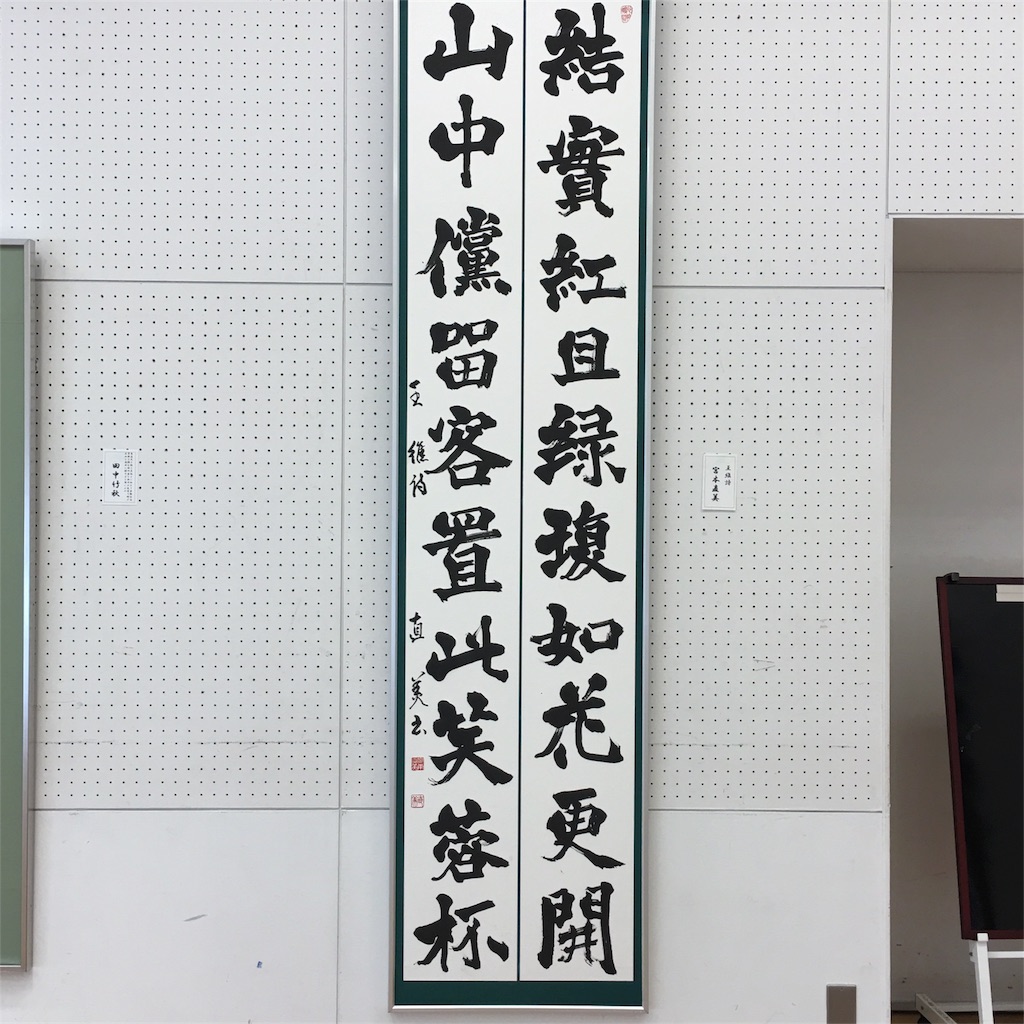 結實紅且緑復如花更開
山中儻留客置此芙蓉杯
王維詩 直美書
王維詩
宮本直美
田中竹秋